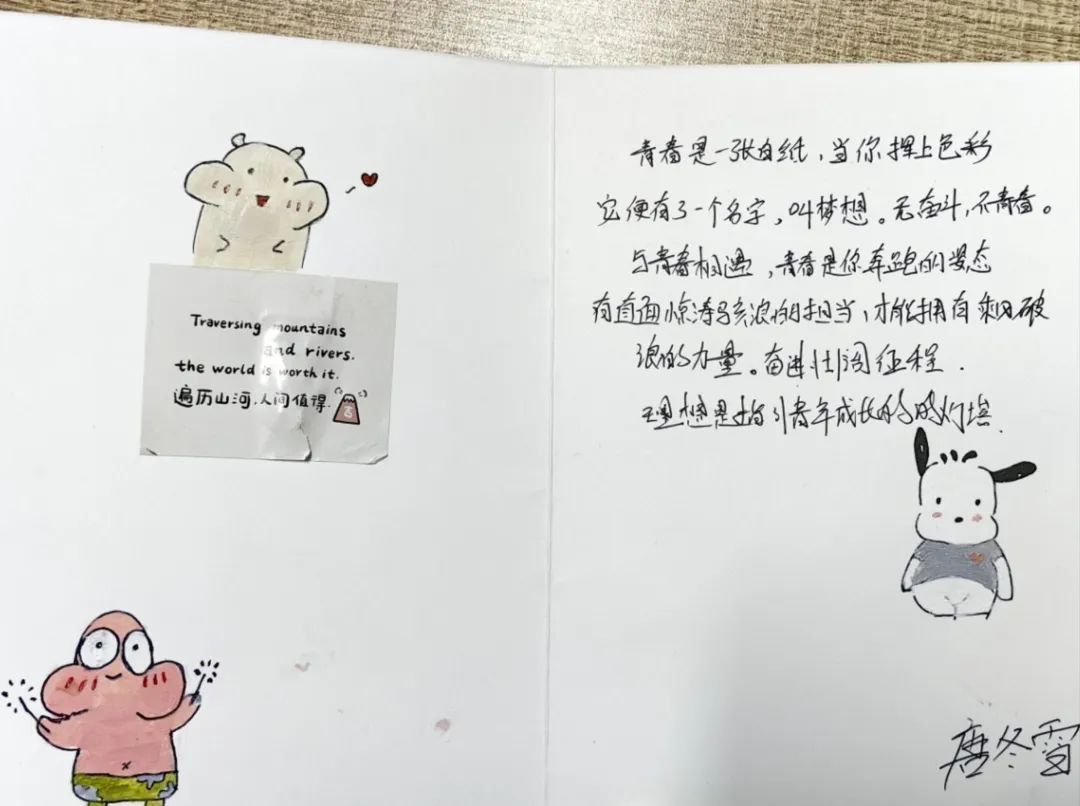 Traversing mountains
and rivers.
the world is worth it.
遍历山河,人间值得.
青春是一张白纸,当你撰上色彩
它便有了一个名字,叫梦想。无奋斗,不青春。
与青春相遇,青春是你奔跑的姿态
有直面惊涛骇浪的担当,才能拥有乘风破
浪的力量。奋进壮阔征程.
理想是指引青年成长的灯塔.
唐冬雪